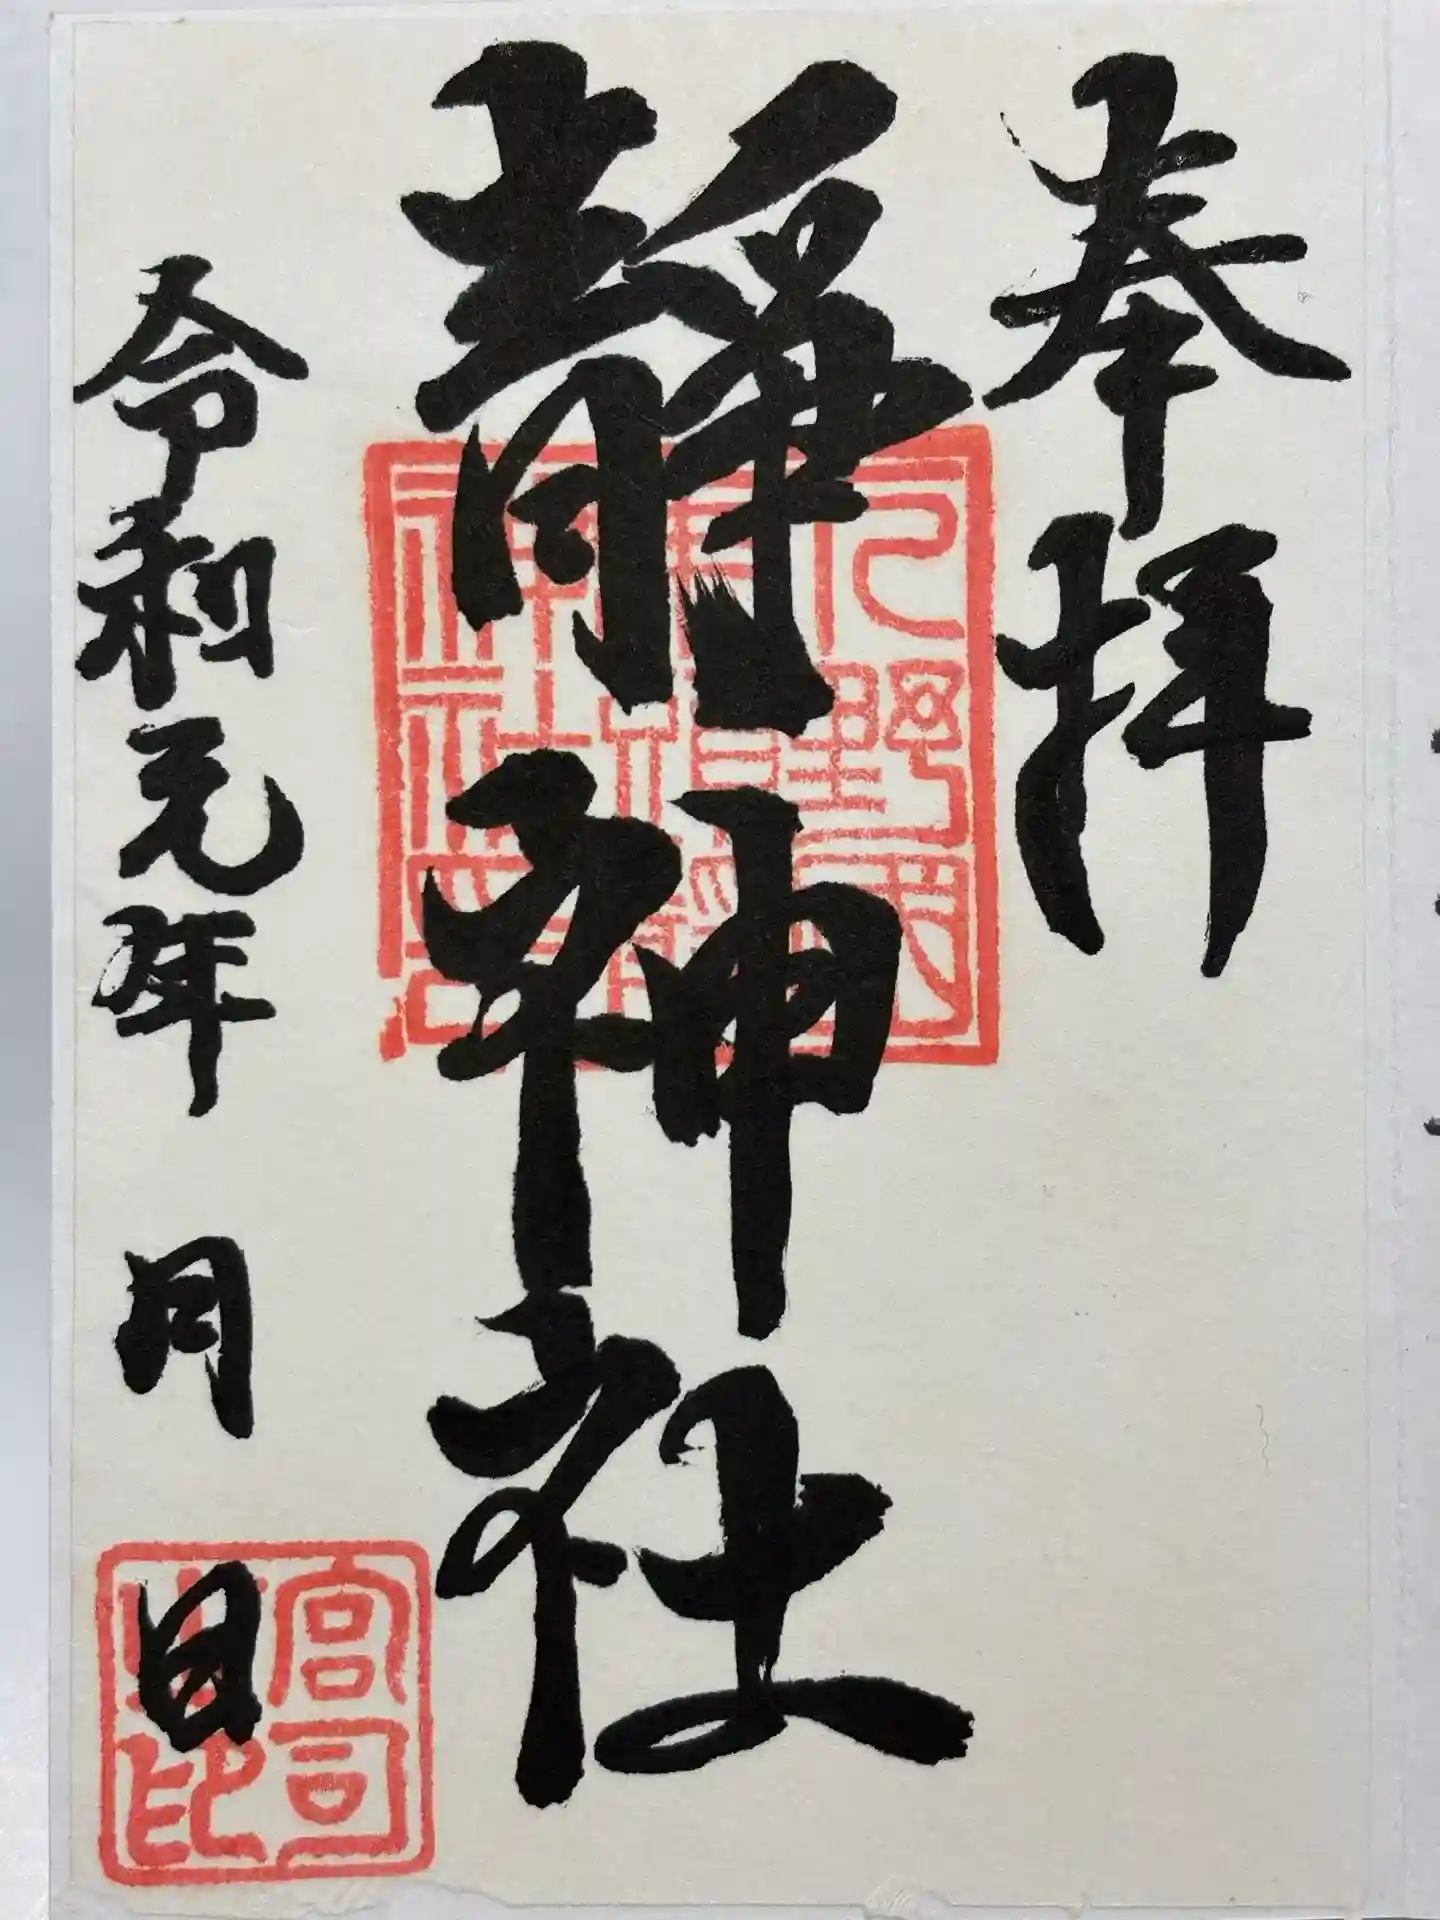 奉拝
靜神社
令和元年 月 日
宮司之印